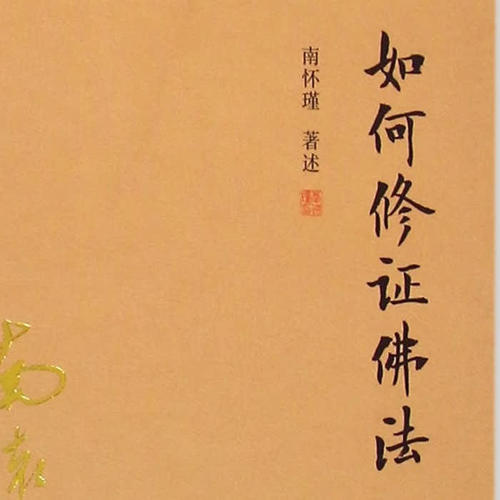 如何修证佛法
南怀瑾 著述